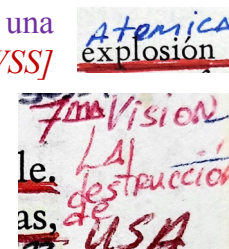 una
VSS]
Atomica
explosión
7ma VISION
LA
le.
destrucción
de
as,
USA